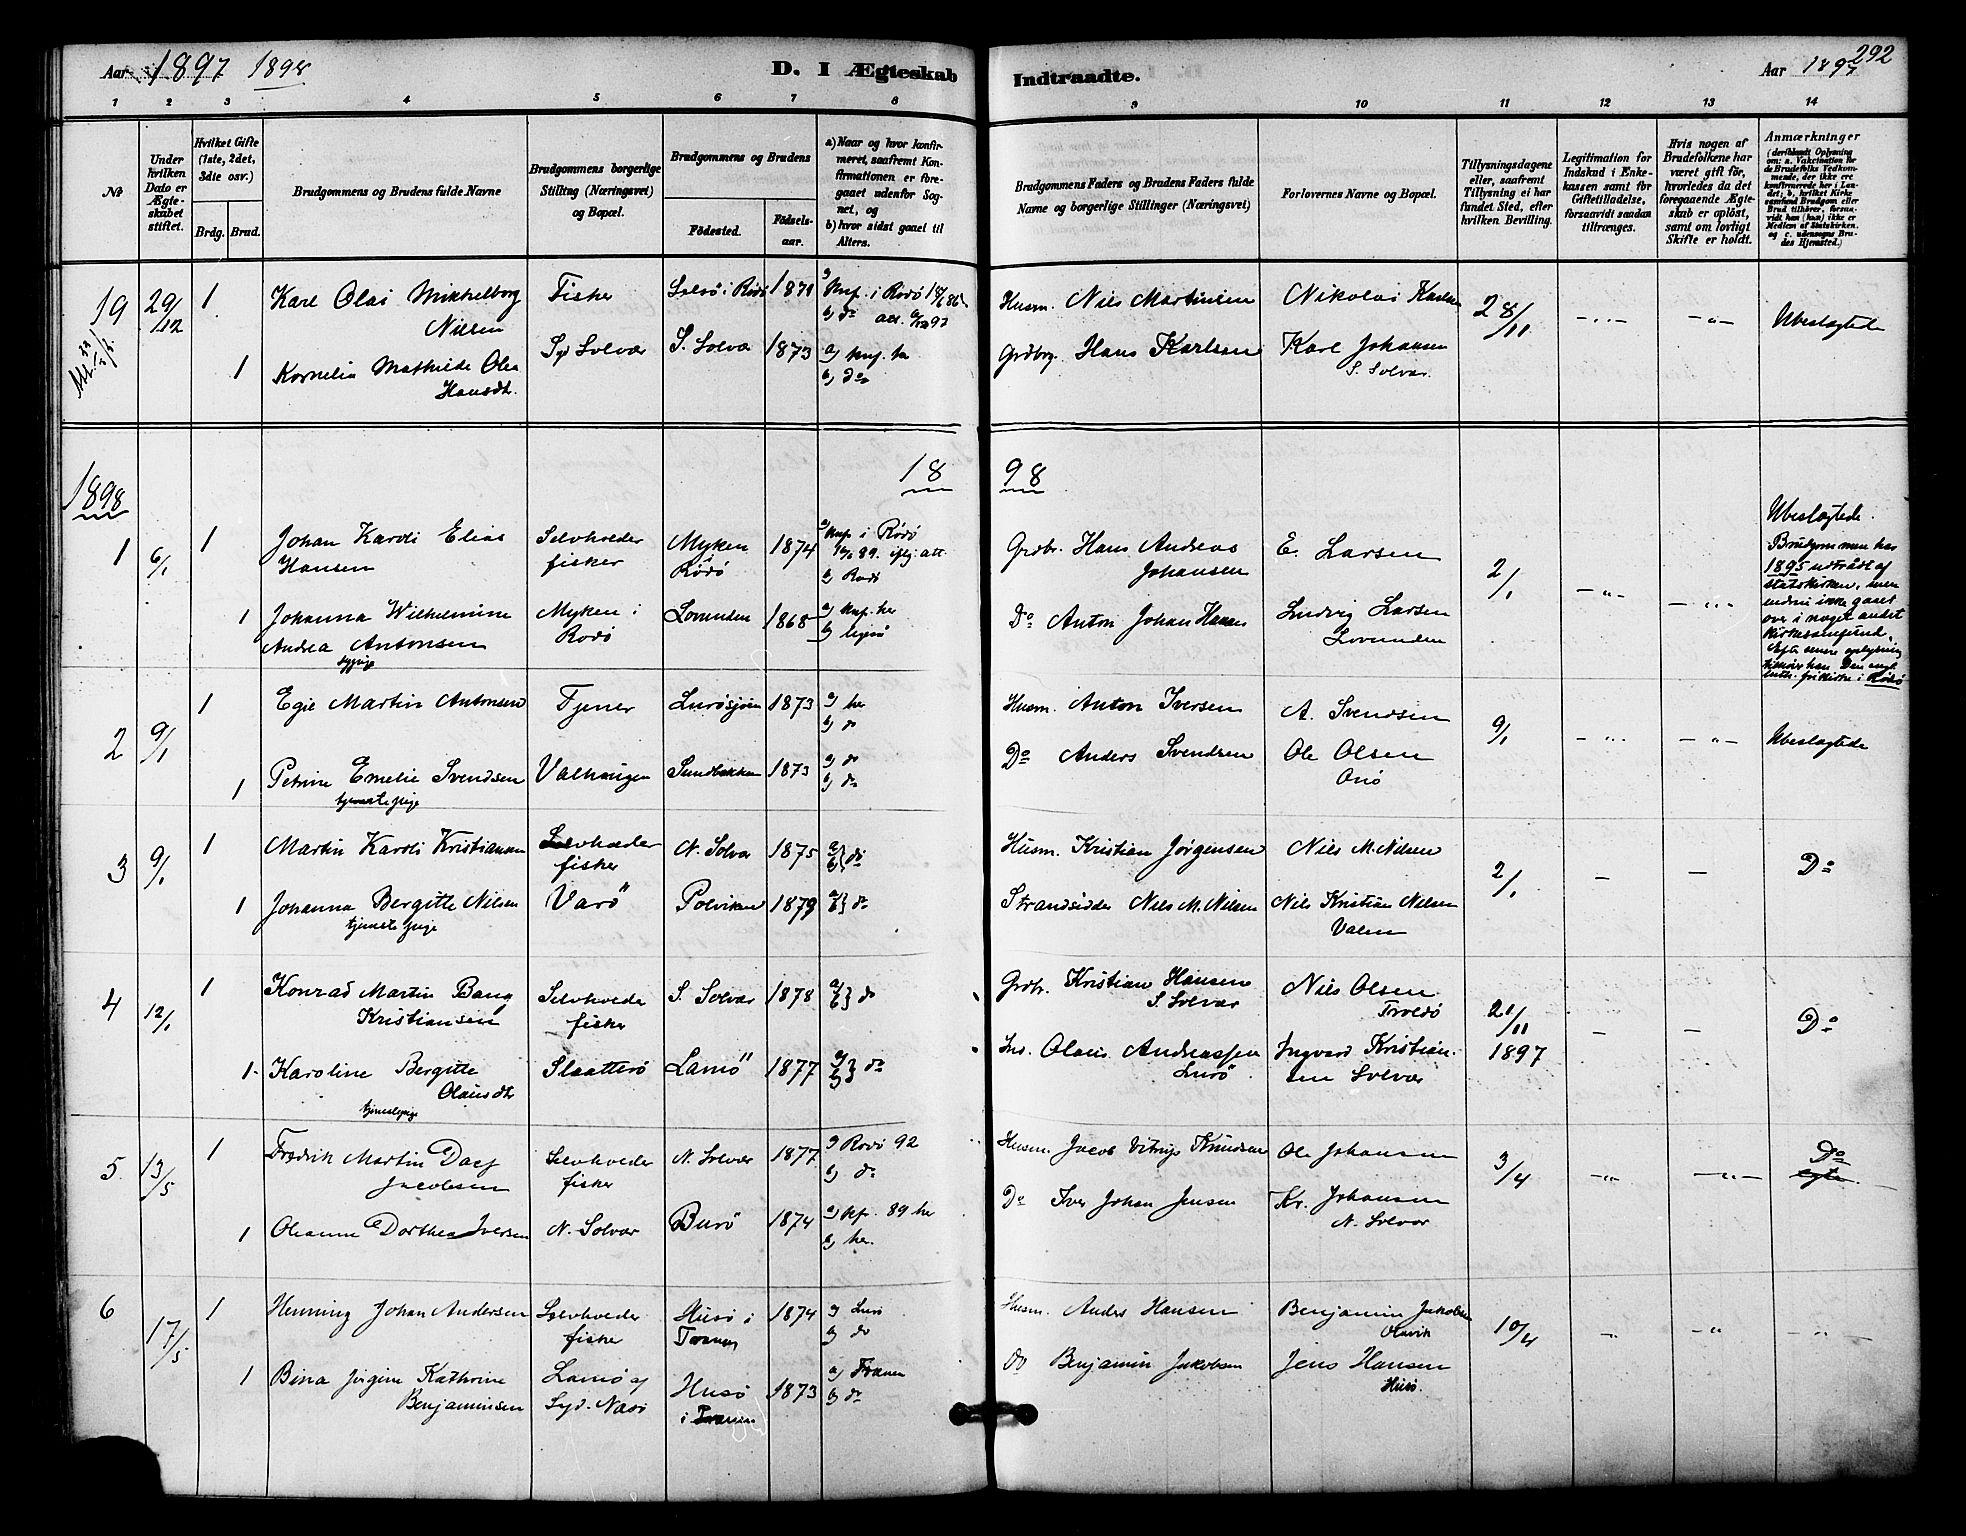 Aar 1897 1898
D. I Ægteskab Indtraadte.
Aar 1897
292
1 2 3 4 5 6 7 8 9 10 11 12 13 14
No
Under hvilken Dato er Ægteskabet stiftet.
Hvilket Gifte (1ste, 2det, 3die osv.)
Brdg. Brud.
Brudgommens og Brudens fulde Navne
Brudgommens borgerlige Stilling (Næringsvei) og Bopæl.
Brudgommens og Brudens
Födested.
Födsels-aar.
a) Naar og hvor konfirmeret, saafremt Konfirmationen er foregaaet udenfor Sognet, og
b) hvor sidst gaaet til Alters.
Brudgommens Faders og Brudens Faders fulde Navne og borgerlige Stillinger (Næringsvei)
Forlovernes Navne og Bopæl.
Tillysningsdagene eller, saafremt Tillysning ei har fundet Sted, efter hvilken Bevilling.
Legitimation for Indskud i Enkekassen samt for Giftetilladelse, forsaavidt saadan tiltrænges.
Hvis nogen af Brudefolkene har været gift för, hvorledes da det foregaaende Ægteskab er oplöst, samt om lovligt Skifte er holdt.
Anmærkninger
(deriblandt Oplysning om: a. Vakcination for de Brudefolks Vedkommende, der ikke ere konfirmerede her i Landet; b. hvilket Kirkesamfund Brudgom eller Brud tilhörer, forsaavidt han (hun) ikke er Medlem af Statskirken, og c. udensogns Brudes Hjemsted.)
19 29/12 1 Karl Olai Mikkelborg Nilsen Fisker Selsö i Rödö 1871
a) Knf. i Rödö
b) do
Husm. Nils Martinsen Nikolai Karlsen 28/11 - " - - " - Ubeslagtede
1 Kornelia Mathilde Olea Hansdt. Syd Solvær S. Solvær 1873 a) Knf. her b) do
Grdbrg. Hans Karlsen Karl Johansen S. Solvær.
1898
18 98
1 6/1 1 Johan Karoli Elias Hansen Selvhveder fisker Myken Rödö 1874
a) Knf. i Rödö 89. iflg. att.
b) Rödö
Grdbr. Hans Andreas Johansen E. Larsen 2/1 - " - - " -
Ubeslagtede.
Brudgommen har
1895 udtrådt af
statskirken, men
endnu ikke gaaet
over i noget andet
kirkesamfund.
1 Johanna Wilhelmine Andrea Antonsen Myken i Rödö Lovunden 1868 a) Knf. her b) ligesö
Do Anton Johan Hansen Ludvig Larsen Lovunden
2 9/1 1 Egil Martin Antonsen Tjener Lurösjöen 1873 a) her b) do
Husm. Anton Iversen A. Svendsen 9/1 - " - - " - Ubeslagtede
1 Petrine Emelie Svendsen tjenestepige Valhaugen Sundbakken 1873 a) do b) do
Do Anders Svendsen Ole Olsen Onö
3 9/1 1 Martin Karoli Kristiansen Selvhveder fisker N. Solvær 1875 a) b) } do
Husm. Kristian Jörgensen Nils M. Nilsen 2/1 - - Do
1 Johanna Bergitte Nilsen tjenestepige Varö Polviken 1879 a) b) } do
Strandsidder Nils M. Nilsen Nils Kristian Nilsen Valen
4 12/1 1 Konrad Martin Bang Kristiansen Selvhveder fisker S. Solvær 1878 a) b) } do
Grdbr. Kristian Hansen S. Solvær Nils Olsen Troldö 21/11 1897 - - Do
1 Karoline Bergitte Olausdtr tjenestepige Slaatterö Lamö 1877 a) b) } do
Ins. Olaus Andreassen Lurö Ingvard Kristiansen Solvær
5 13/5 1 Fredrik Martin Dass Jacobsen Selvhveder fisker N. Solvær 1877 a) Rödö 92 b) do
Husm. Jacob Vitrup Knudsen Ole Johansen 3/4 - " - - " - Do
1 Oleanne Dorthea Iversen N. Solvær Burö 1874 a) Kf. 89 her b) her.
Do Iver Johan Jensen Kr. Johansen N. Solvær
6 17/5 1 Henning Johan Andersen Selvhveder fisker Husö i Trænen 1874 a) Lurö b) do
Husm. Anders Hansen Benjamin Jakobsen 10/4 " - " - "
1 Bina Jörgine Kathrine Benjaminsen Lamö af Syd-Næsö Husö i Trænen 1873 a) Trænen b) do
do Benjamin Jakobsen Jens Hansen Husö.